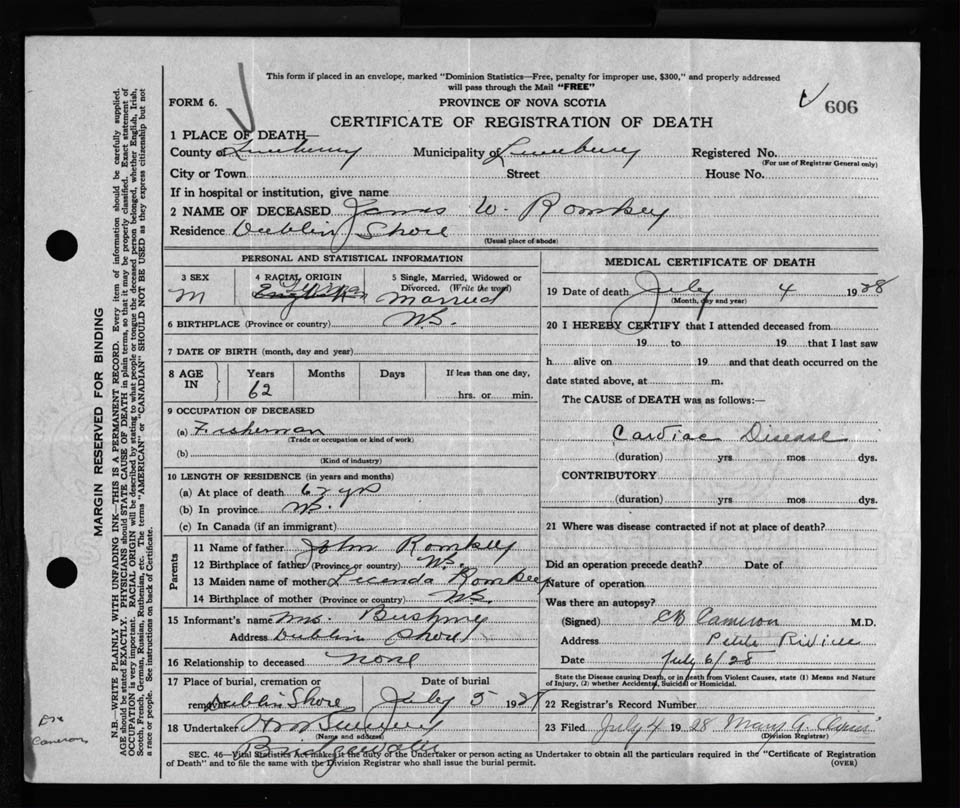 This form if placed in an envelope, marked "Dominion Statistics—Free, penalty for improper use, $300," and properly addressed
will pass through the Mail "FREE"
FORM 6.
PROVINCE OF NOVA SCOTIA
606
CERTIFICATE OF REGISTRATION OF DEATH
1 PLACE OF DEATH—
County of Lunenburg Municipality of Lunenburg Registered No.
(For use of Registrar General only)
City or Town Street House No.
If in hospital or institution, give name
2 NAME OF DECEASED James W. Romkey
Residence Dublin Shore
(Usual place of abode)
PERSONAL AND STATISTICAL INFORMATION
3 SEX 4 RACIAL ORIGIN 5 Single, Married, Widowed or
Divorced. (Write the word)
M German English Married
6 BIRTHPLACE (Province or country) N.S.
7 DATE OF BIRTH (month, day and year)
8 AGE IN Years Months Days If less than one day,
62 hrs. or min.
9 OCCUPATION OF DECEASED
(a) Fisherman
(Trade or occupation or kind of work)
(b)
(Kind of industry)
10 LENGTH OF RESIDENCE (in years and months)
(a) At place of death 62 yrs
(b) In province N.S.
(c) In Canada (if an immigrant)
Parents
11 Name of father John Romkey
12 Birthplace of father (Province or country) N.S.
13 Maiden name of mother Lucinda Romkey
14 Birthplace of mother (Province or country) N.S.
15 Informant's name Mrs.
Address Dublin Shore
16 Relationship to deceased none
17 Place of burial, cremation or Date of burial
removal Dublin Shore July 5 1928
18 Undertaker
(Name and address)
Bridgewater
MEDICAL CERTIFICATE OF DEATH
19 Date of death July 4 1928
(Month, day and year)
20 I HEREBY CERTIFY that I attended deceased from
19 to 19 that I last saw
h alive on 19 and that death occurred on the
date stated above, at m.
The CAUSE of DEATH was as follows:—
Cardiac Disease
(duration) yrs mos dys.
CONTRIBUTORY
(duration) yrs mos dys.
21 Where was disease contracted if not at place of death?
Did an operation precede death? Date of
Nature of operation
Was there an autopsy?
(Signed) Cameron M.D.
Address Petite Riviere
Date July 6/28
State the Disease causing Death, or in death from Violent Causes, state (1) Means and Nature
of Injury, (2) whether Accidental, Suicidal or Homicidal.
22 Registrar's Record Number
23 Filed July 4 1928 Mary A.
(Division Registrar)
SEC. 46—Vital Statistics Act makes it the duty of the Undertaker or person acting as Undertaker to obtain all the particulars required in the "Certificate of Registration
of Death" and to file the same with the Division Registrar who shall issue the burial permit. (OVER)
MARGIN RESERVED FOR BINDING
N.B.—WRITE PLAINLY WITH UNFADING INK—THIS IS A PERMANENT RECORD. Every item of information should be carefully supplied.
AGE should be stated EXACTLY. PHYSICIANS should STATE CAUSE OF DEATH in plain terms, so that it may be properly classified. Exact statement of
OCCUPATION is very important. RACIAL ORIGIN will be described by stating to what people or tongue the deceased person belonged, whether English, Irish,
Scotch, French, German, Russian, Ruthenian, etc. The terms "AMERICAN" or "CANADIAN" SHOULD NOT BE USED as they express citizenship but not
a race or people. See instructions on back of Certificate.
Dr
Cameron